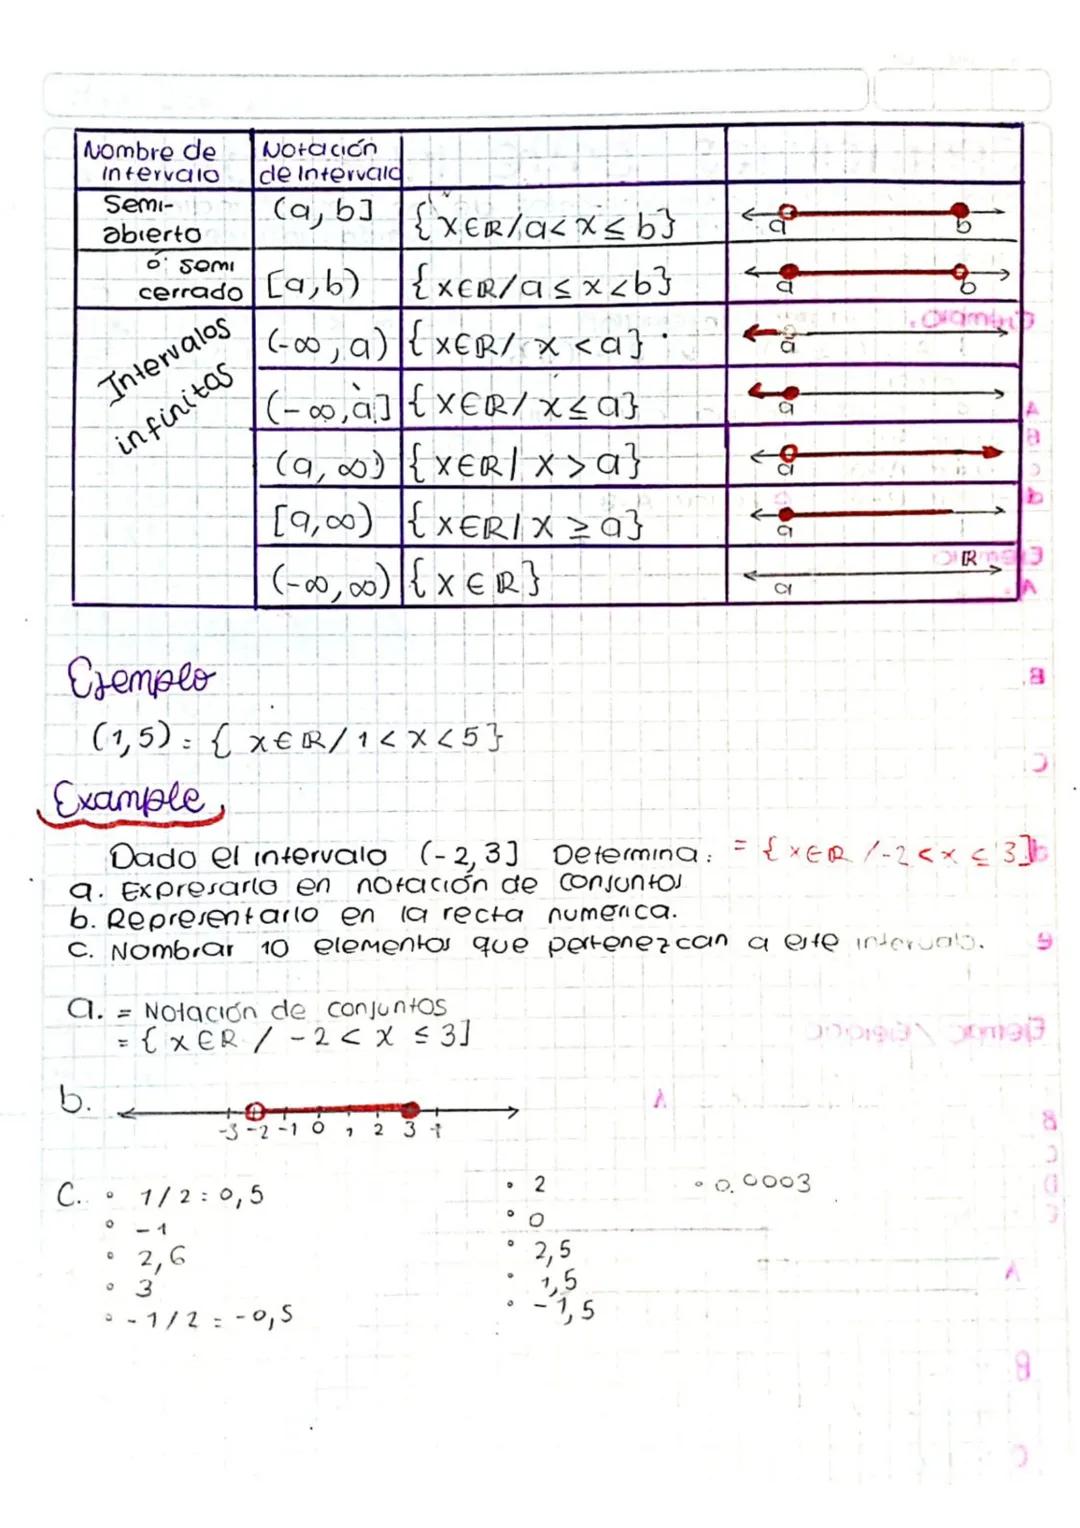 Nombre de Intervalo
Notación de Intervalo
Semi-abierto
(a, b]
{x∈ℝ/a<x≤b}
a b
ó semi cerrado
[a,b)
{x∈ℝ/a≤x<b}
a b
Intervalos infinitos
(-∞, a)
{x∈ℝ/ x<a}
a
(-∞,a]
{x∈ℝ/ x≤a}
a
(a, ∞)
{x∈ℝ/ x>a}
a
[a,∞)
{x∈ℝ/ x≥a}
a
(-∞,∞)
{x∈ℝ}
a ℝ
Ejemplo
(1,5) = { x∈ℝ/ 1<x<5}
Example
Dado el intervalo (-2,3] Determina: = {x∈ℝ /-2<x≤3]
a. Expresarlo en notación de conjuntos
b. Representarlo en la recta numerica.
c. Nombrar 10 elementos que pertenezcan a este intervalo.
a. = Notación de conjuntos
= { x∈ℝ / -2<x≤3]
b.
-3 -2 -1 0 1 2 3
c. • 1/2 = 0,5
• -1
• 2,6
• 3
• -1/2 = -0,5
• 2
• 0
• 2,5
• 1,5
• -1,5
• 0.0003